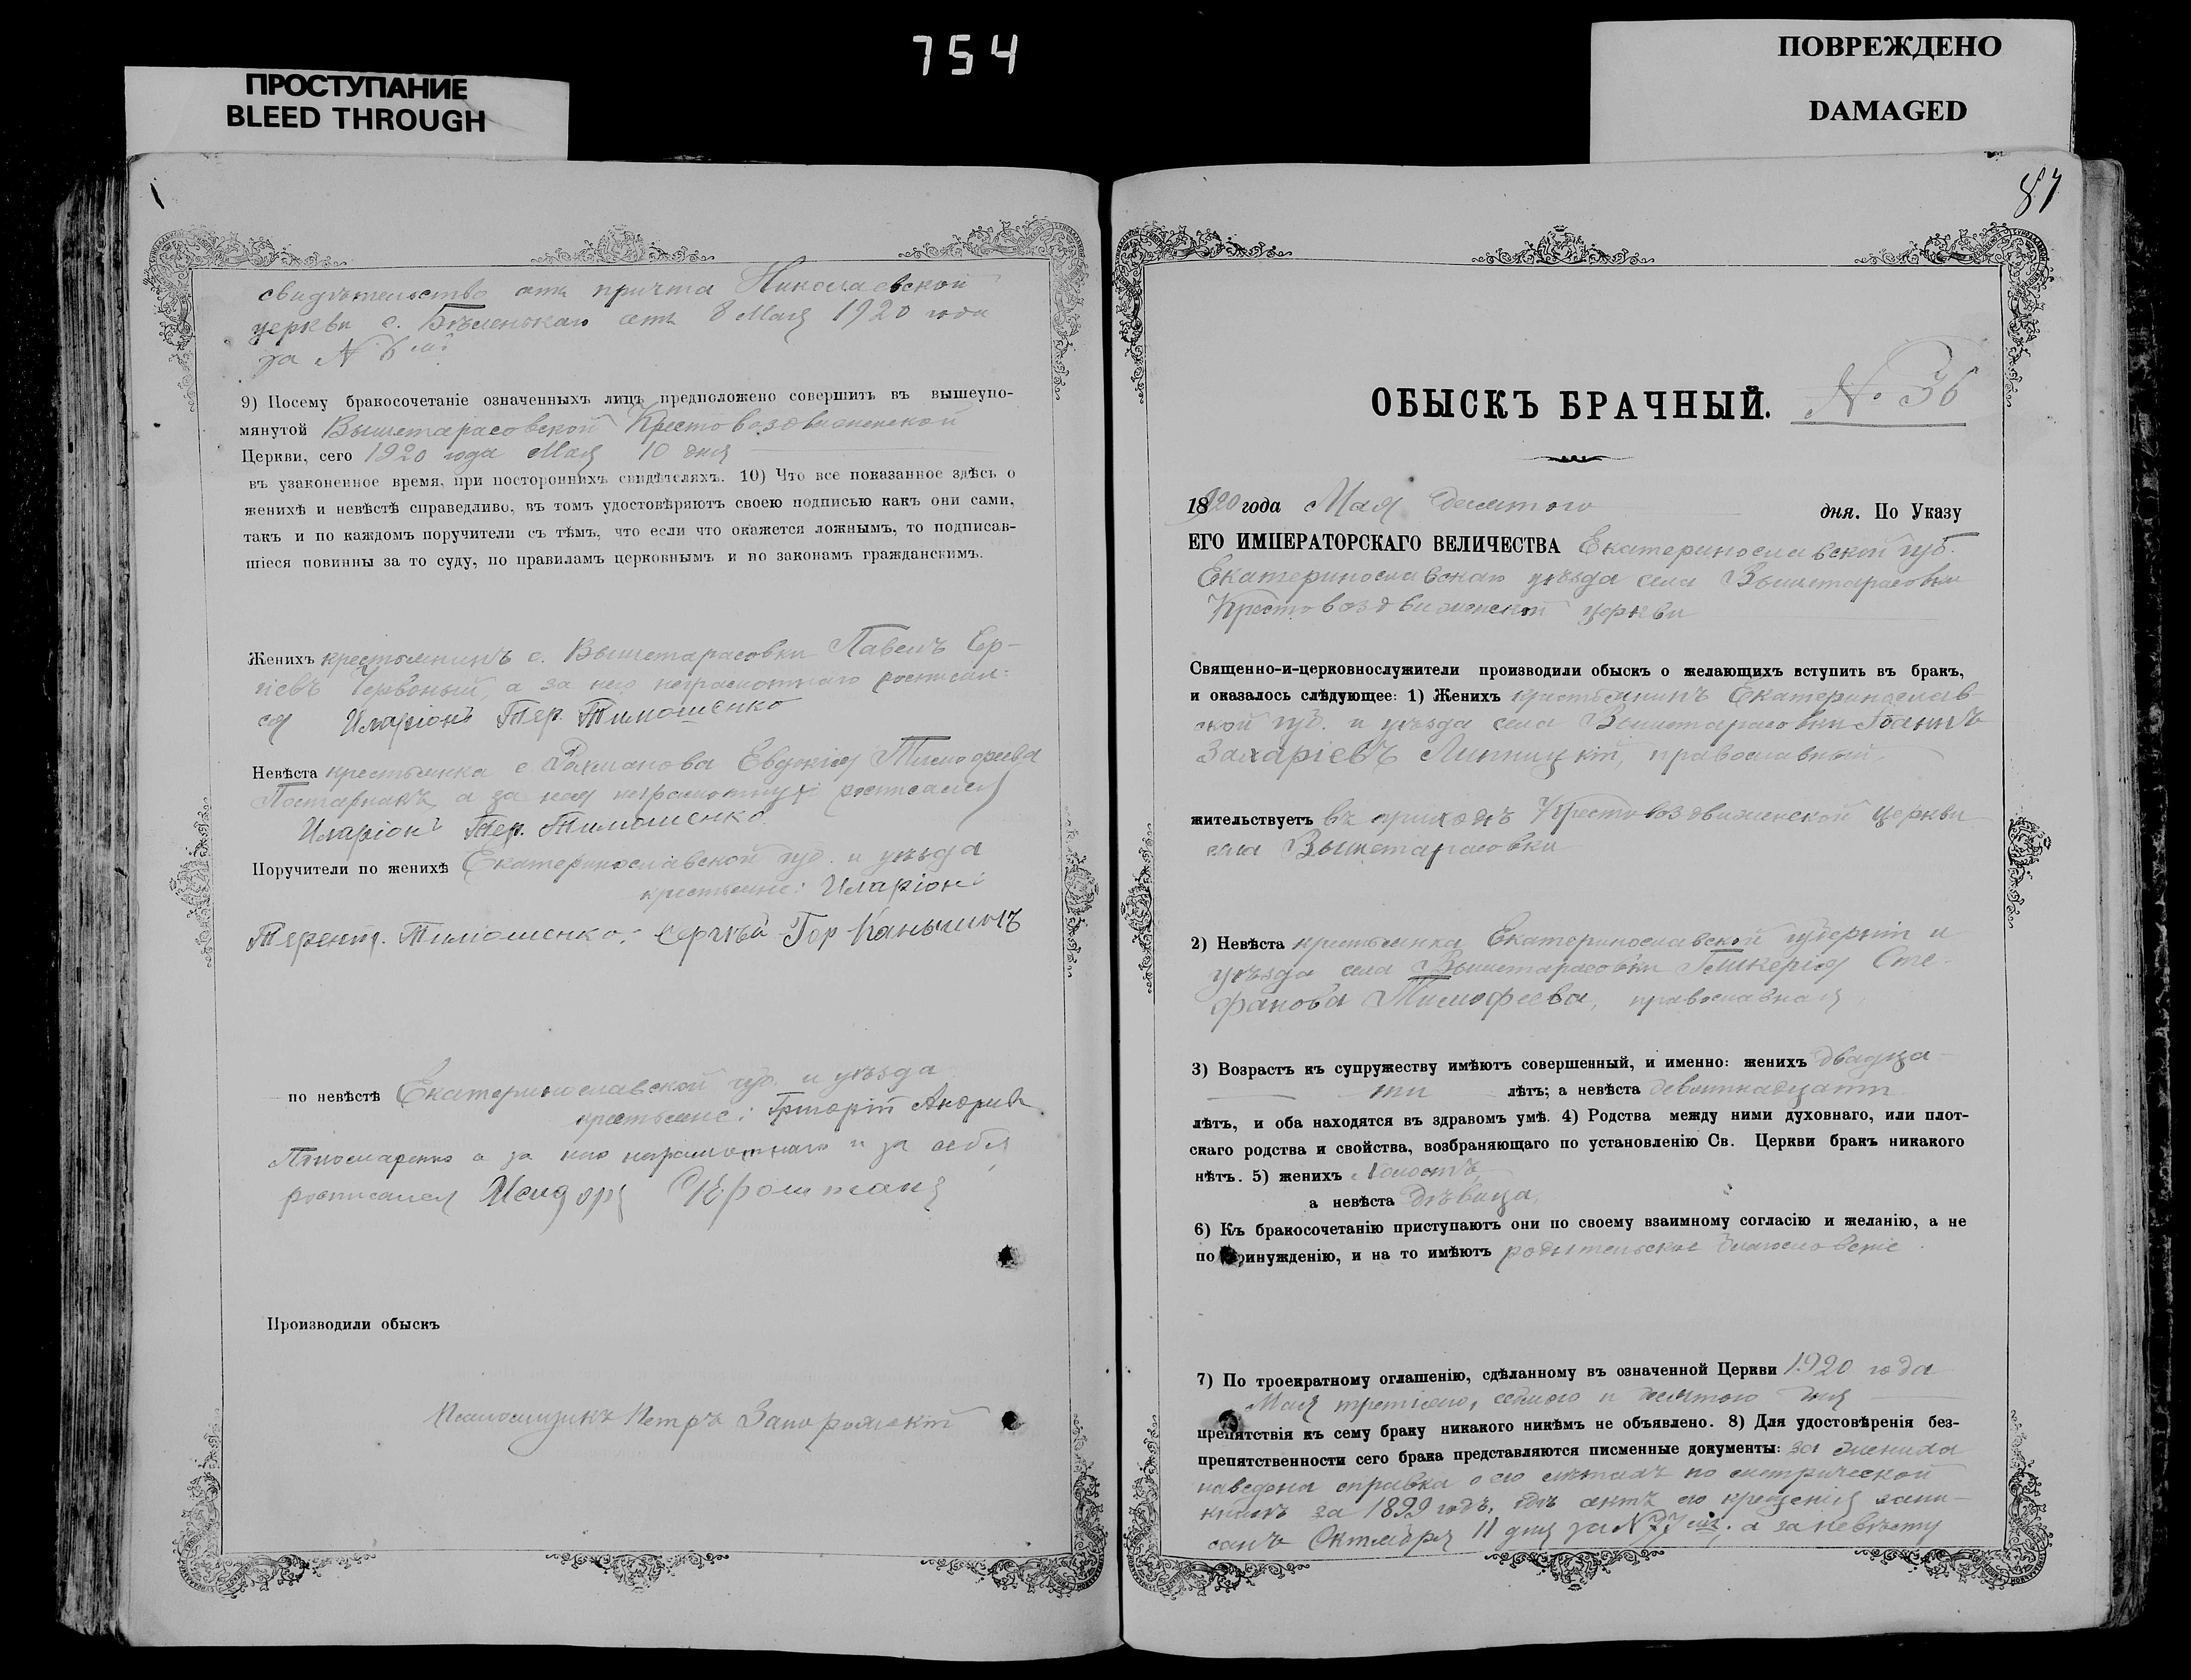 754
ПРОСТУПАНИЕ
BLEED THROUGH
ПОВРЕЖДЕНО
DAMAGED
свидѣтельство отъ причта Николаевской
церкви с. Бѣленькаго отъ 8 Мая 1920 года
за №
9) Посему бракосочетаніе означенныхъ лицъ предположено совершить въ вышеупо-
мянутой Вышетарасовской Крестовоздвиженской
Церкви, сего 1920 года Мая 10 дня
въ узаконенное время, при постороннихъ свидѣтеляхъ. 10) Что все показанное здѣсь о
женихѣ и невѣстѣ справедливо, въ томъ удостовѣряютъ своею подписью какъ они сами,
такъ и по каждомъ поручители съ тѣмъ, что если что окажется ложнымъ, то подписав-
шіеся повинны за то суду, по правиламъ церковнымъ и по законамъ гражданскимъ.
Женихъ крестьянинъ с. Вышетарасовки Павелъ
а за него неграмотнаго росписал-
ся Иларіонъ Тер. Тимошенко
Невѣста крестьянка с. Евдокія Тимофеева
а за нея неграмотную росписался
Иларіонъ Тер. Тимошенко
Поручители по женихѣ Екатеринославской губ. и уѣзда
крестьяне: Иларіонъ
Терент. Тимошенко. Сергѣй Гор
по невѣстѣ Екатеринославской губ. и уѣзда
крестьяне: Григорій Андреев
Пономаренко а за него неграмотнаго и за себя
росписался
Производили обыскъ
Псаломщикъ Петръ Запорожскій
87
ОБЫСКЪ БРАЧНЫЙ. № 36
1920 года Мая десятого дня. По Указу
ЕГО ИМПЕРАТОРСКАГО ВЕЛИЧЕСТВА Екатеринославской губ.
Екатеринославскаго уѣзда села Вышетарасовки
Крестовоздвиженской церкви
Священно-и-церковнослужители производили обыскъ о желающихъ вступить въ бракъ,
и оказалось слѣдующее: 1) Женихъ крестьянинъ Екатеринослав-
ской губ. и уѣзда села Вышетарасовки Іоаннъ
Захаріевъ Липницкій, православный,
жительствуетъ въ приходѣ Крестовоздвиженской церкви
села Вышетарасовки
2) Невѣста крестьянка Екатеринославской губерніи и
уѣзда села Вышетарасовки Гликерія Сте-
фанова Тимофеева, православная
3) Возрастъ къ супружеству имѣютъ совершенный, и именно: женихъ двадца-
ти лѣтъ; а невѣста девятнадцати
лѣтъ, и оба находятся въ здравомъ умѣ. 4) Родства между ними духовнаго, или плот-
скаго родства и свойства, возбраняющаго по установленію Св. Церкви бракъ никакого
нѣтъ. 5) женихъ холостъ,
а невѣста дѣвица,
6) Къ бракосочетанію приступаютъ они по своему взаимному согласію и желанію, а не
по принужденію, и на то имѣютъ родительское благословеніе
7) По троекратному оглашенію, сдѣланному въ означенной Церкви 1920 года
Мая третьяго, седьмого и десятого дня
препятствія къ сему браку никакого никѣмъ не объявлено. 8) Для удостовѣренія без-
препятственности сего брака представляются писменные документы: за жениха
наведена справка о его лѣтахъ по метрической
книгѣ за 1899 годъ, гдѣ актъ его крещенія запи-
санъ Октября 11 дня за № 77 а за невѣсту